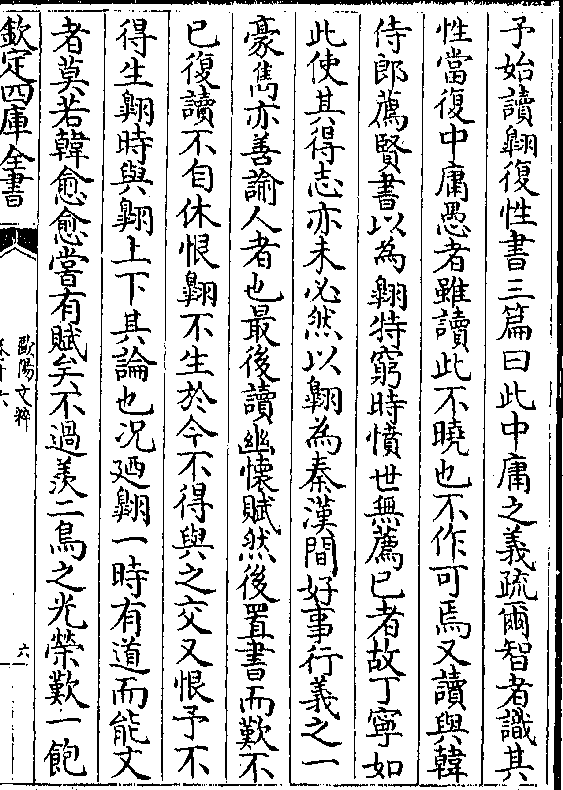 予始讀翺復性書三篇曰此中庸之義疏爾智者識其
性當復中庸愚者雖讀此不曉也不作可焉又讀與韓
侍郎薦賢書以為翺特窮時憤世無薦已者故丁寧如
此使其得志亦未必然以翺為秦漢間好事行義之一
豪雋亦善諭人者也最後讀幽懷賦然後置書而歎不
已復讀不自休恨翺不生於今不得與之交又恨予不
得生翺時與翺上下其論也况廼翺一時有道而能文
者莫若韓愈愈嘗有賦矣不過羨二鳥之光榮歎一飽
欽定四庫全書
歐陽文粹
卷十六
六